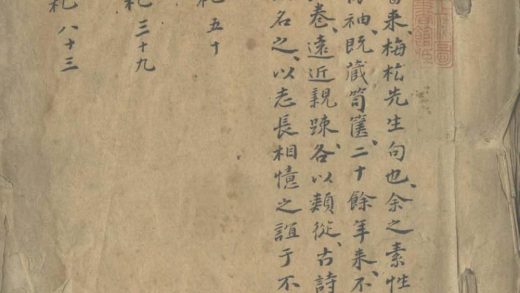 來、梅松先生句也、余之素性
袖、既藏笥篋、二十餘年来、不
卷、遠近親踈、各以類從、古詩
名之、以志長相憶之誼于不
札五十
札三十九
札八十三